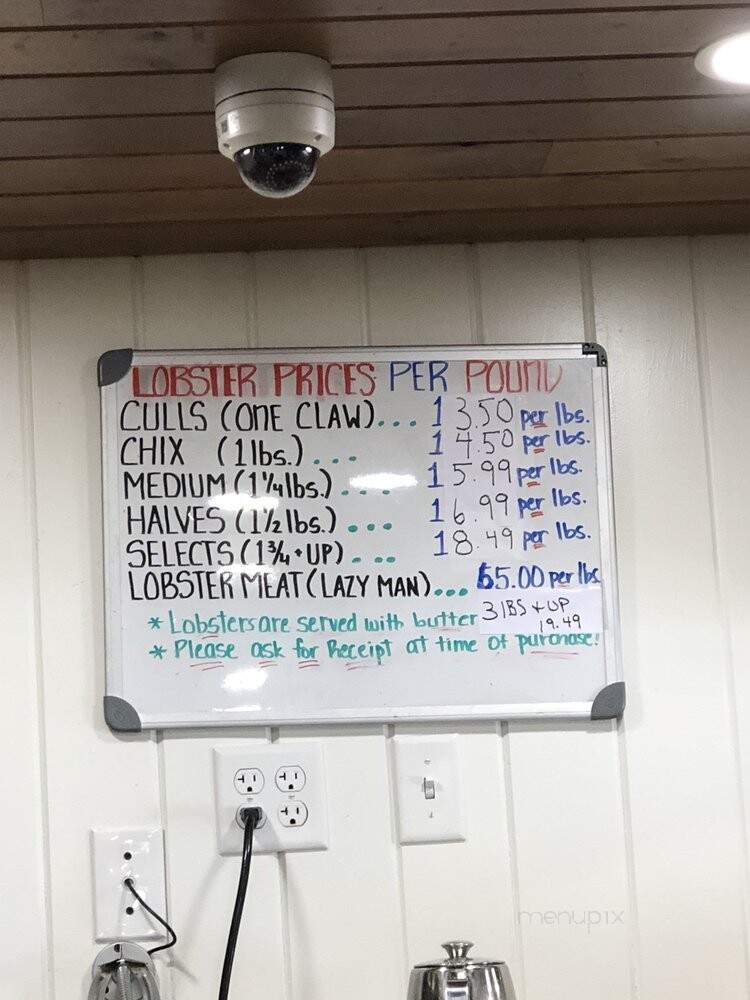 LOBSTER PRICES PER POUND
CULLS (ONE CLAW).... 13.50 per lbs.
CHIX (1 lbs.) .... 14.50 per lbs.
MEDIUM (1 1/4 lbs.) .... 15.99 per lbs.
HALVES (1 1/2 lbs.) ... 16.99 per lbs.
SELECTS (1 3/4 + UP) .... 18.49 per lbs.
LOBSTER MEAT (LAZY MAN)... 65.00 per lbs
3 lBS + UP
19.49
* Lobsters are served with butter
* Please ask for Receipt at time of purchase!
menupix